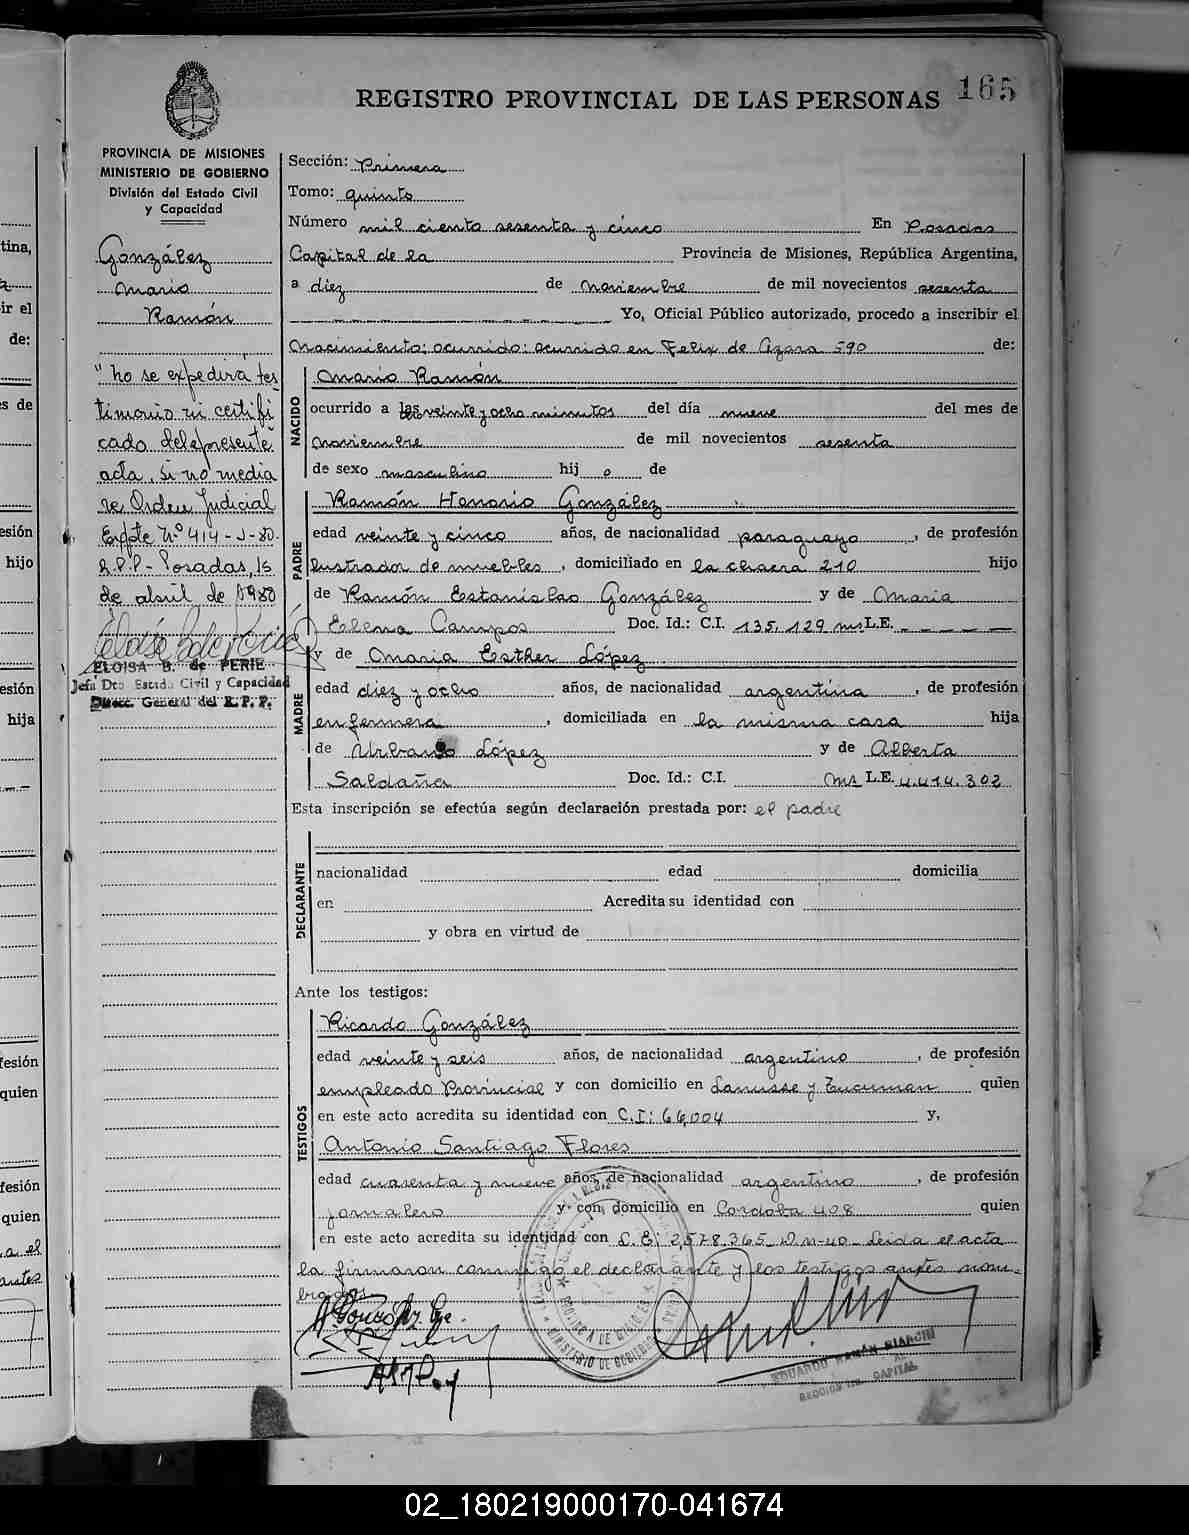 165
REGISTRO PROVINCIAL DE LAS PERSONAS
PROVINCIA DE MISIONES
MINISTERIO DE GOBIERNO
División del Estado Civil
y Capacidad
González
Mario
Ramón
"No se expedirá tes-
timonio ni certifi
cado del presente
acta, si no media
re Orden Judicial
Expte Nº 414-J-80.
R.P.P- Posadas, 15
de abril de 1980
ELOISA B. de PERIE
Jefa Dto Estado Civil y Capacidad
Direcc. General del R. P. P.
Sección: Primera
Tomo: quinto
Número mil ciento sesenta y cinco En Posadas
Capital de la Provincia de Misiones, República Argentina,
a diez de noviembre de mil novecientos sesenta
Yo, Oficial Público autorizado, procedo a inscribir el
Nacimiento: ocurrido: ocurrido en Felix de Azara 590 de:
NACIDO
Mario Ramón
ocurrido a las veinte y ocho minutos del día nueve del mes de
noviembre de mil novecientos sesenta
de sexo masculino hij o de
PADRE
Ramón Honorio González
edad veinte y cinco años, de nacionalidad paraguayo, de profesión
lustrador de muebles, domiciliado en la chacra 210 hijo
de Ramón Estanislao González y de Maria
Elena Campos Doc. Id.: C.I. 135.129 ms L.E.
MADRE
y de Maria Esther López
edad diez y ocho años, de nacionalidad argentina, de profesión
enfermera, domiciliada en la misma casa hija
de Urbano López y de Alberta
Saldaña Doc. Id.: C.I. ms L.E. 4.414.302
Esta inscripción se efectúa según declaración prestada por: el padre
DECLARANTE
nacionalidad edad domicilia
en Acredita su identidad con
y obra en virtud de
Ante los testigos:
TESTIGOS
Ricardo González
edad veinte y seis años, de nacionalidad argentino, de profesión
empleado Provincial y con domicilio en Lanusse y Tucuman quien
en este acto acredita su identidad con C.I: 66,004 y,
Antonio Santiago Flores
edad cuarenta y nueve años, de nacionalidad argentino, de profesión
jornalero y con domicilio en Cordoba 408 quien
en este acto acredita su identidad con L.E: 2,578,365 D.M-40- Leida el acta
la firmaron conmigo el declarante y los testigos antes nom-
brados
PROVINCIA DE MISIONES
MINISTERIO DE GOBIERNO
EDUARDO RAMÓN BIANCHI
SECCION 1ra. CAPITAL
tina,
ir el
de:
s de
esión
hijo
esión
hija
fesión
quien
fesión
quien
a el
antes
02_180219000170-041674